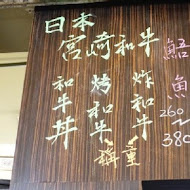 日本
宮崎和牛
和牛丼
烤和牛
炸和牛
稱重
魚
260
380